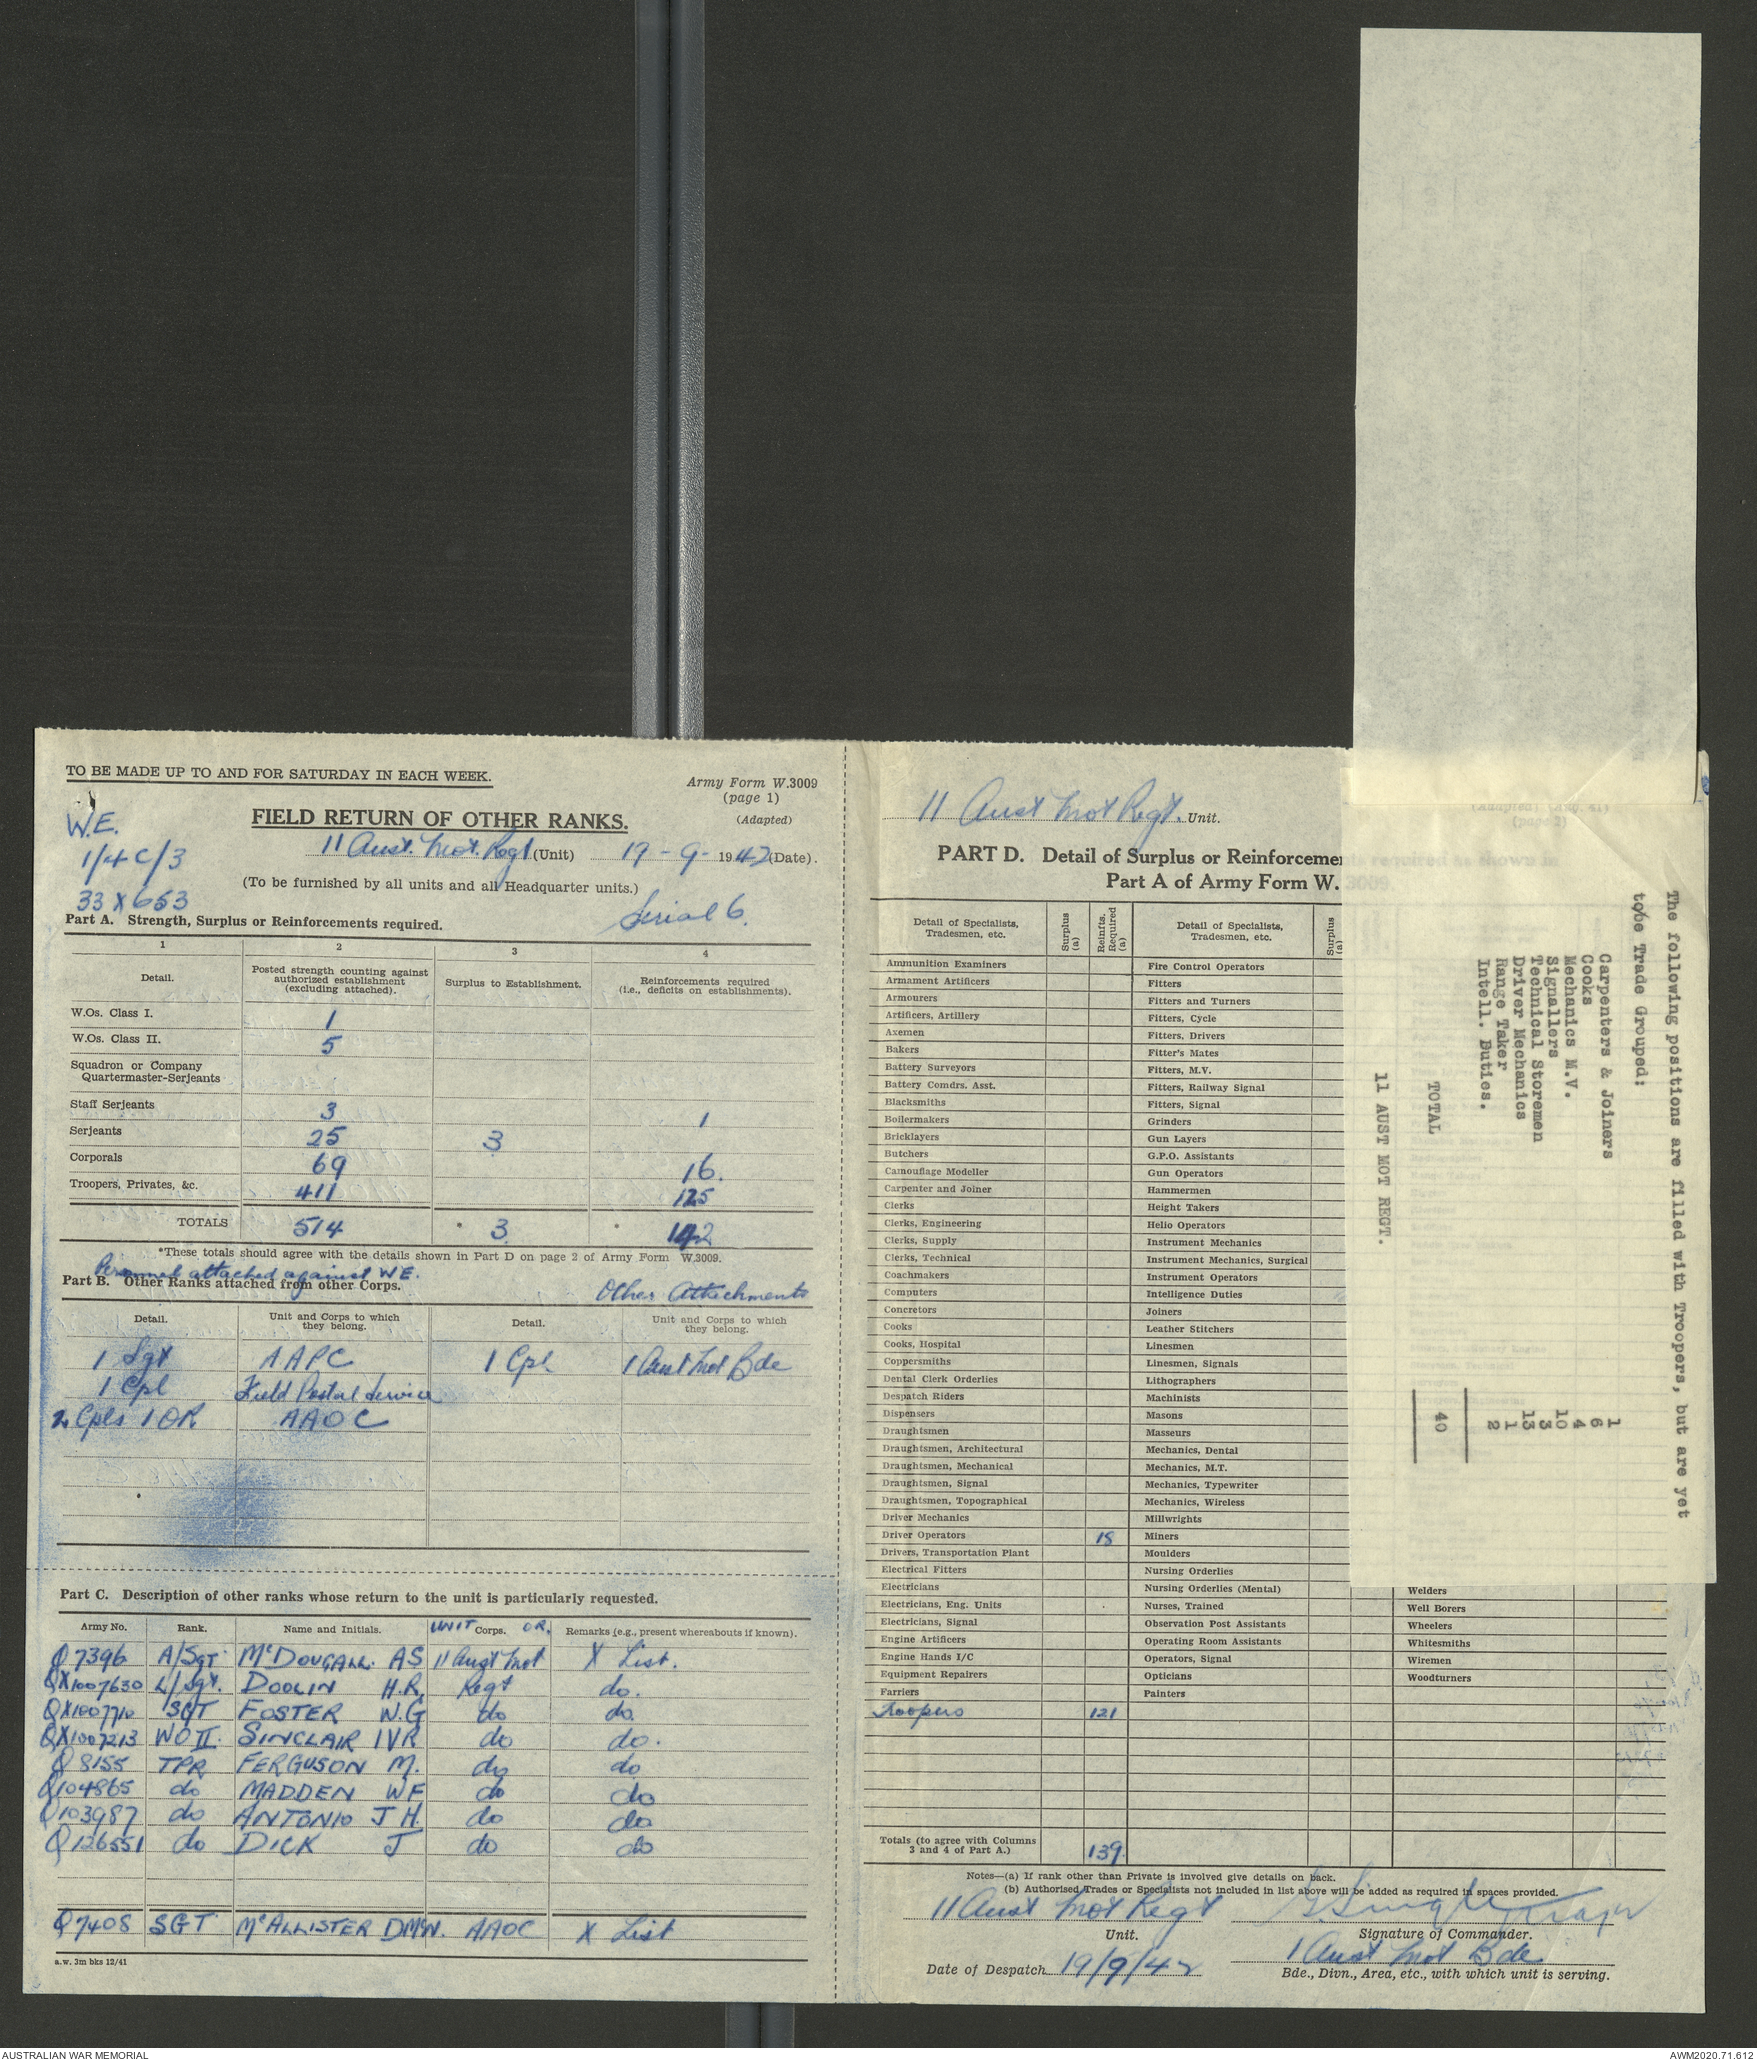 TO BE MADE UP TO AND FOR SATURDAY IN EACH WEEK.
Army Form W.3009
(page 1)
(Adapted)
W.E.
1/4C/3
33 X 653
FIELD RETURN OF OTHER RANKS.
11 Aust. Mot. Regt (Unit) 19-9-1942 (Date).
(To be furnished by all units and all Headquarter units.)
Serial 6.
Part A. Strength, Surplus or Reinforcements required.
1 2 3 4
Detail. Posted strength counting against authorized establishment (excluding attached). Surplus to Establishment. Reinforcements required (i.e., deficits on establishments).
W.Os. Class I. 1
W.Os. Class II. 5
Squadron or Company Quartermaster-Serjeants
Staff Serjeants 3 1
Serjeants 25 3
Corporals 69 16.
Troopers, Privates, &c. 411 125
TOTALS 514 * 3 * 142
*These totals should agree with the details shown in Part D on page 2 of Army Form W.3009.
Personnel attached against W.E.
Part B. Other Ranks attached from other Corps.
Other Attachments
Detail. Unit and Corps to which they belong. Detail. Unit and Corps to which they belong.
1 Sgt AAPC 1 Cpl 1 Aust Mot Bde
1 Cpl Field Postal Service
2 Cpls 1 OR AAOC
Part C. Description of other ranks whose return to the unit is particularly requested.
Army No. Rank. Name and Initials. UNIT OR Corps. Remarks (e.g., present whereabouts if known).
Q7396 A/SGT McDOUGALL. AS 11 Aust Mot X List.
QX1007630 L/Sgt. DOOLIN H.R. Regt do.
QX1007710 SGT FOSTER W.G do do.
QX1007213 WO II SINCLAIR IVR do do.
Q8155 TPR FERGUSON M. do do
Q104865 do MADDEN WF do do
Q103987 do ANTONIO J H. do do
Q126551 do DICK J do do
Q7408 SGT McALLISTER DMcW. AAOC X List
a.w. 3m bks 12/41
11 Aust Mot Regt. Unit.
(Adapted) (Aug. 41)
(page 2)
PART D. Detail of Surplus or Reinforcements required as shown in
Part A of Army Form W.3009.
Detail of Specialists, Tradesmen, etc. Surplus (a) Reinfts. Required (a) Detail of Specialists, Tradesmen, etc. Surplus (a)
Ammunition Examiners Fire Control Operators
Armament Artificers Fitters
Armourers Fitters and Turners
Artificers, Artillery Fitters, Cycle
Axemen Fitters, Drivers
Bakers Fitter's Mates
Battery Surveyors Fitters, M.V.
Battery Comdrs. Asst. Fitters, Railway Signal
Blacksmiths Fitters, Signal
Boilermakers Grinders
Bricklayers Gun Layers
Butchers G.P.O. Assistants
Camouflage Modeller Gun Operators
Carpenter and Joiner Hammermen
Clerks Height Takers
Clerks, Engineering Helio Operators
Clerks, Supply Instrument Mechanics
Clerks, Technical Instrument Mechanics, Surgical
Coachmakers Instrument Operators
Computers Intelligence Duties
Concretors Joiners
Cooks Leather Stitchers
Cooks, Hospital Linesmen
Coppersmiths Linesmen, Signals
Dental Clerk Orderlies Lithographers
Despatch Riders Machinists
Dispensers Masons
Draughtsmen Masseurs
Draughtsmen, Architectural Mechanics, Dental
Draughtsmen, Mechanical Mechanics, M.T.
Draughtsmen, Signal Mechanics, Typewriter
Draughtsmen, Topographical Mechanics, Wireless
Driver Mechanics Millwrights
Driver Operators 18 Miners
Drivers, Transportation Plant Moulders
Electrical Fitters Nursing Orderlies
Electricians Nursing Orderlies (Mental) Welders
Electricians, Eng. Units Nurses, Trained Well Borers
Electricians, Signal Observation Post Assistants Wheelers
Engine Artificers Operating Room Assistants Whitesmiths
Engine Hands I/C Operators, Signal Wiremen
Equipment Repairers Opticians Woodturners
Farriers Painters
Troopers 121
Totals (to agree with Columns 3 and 4 of Part A.) 139
Notes—(a) If rank other than Private is involved give details on back.
(b) Authorised Trades or Specialists not included in list above will be added as required in spaces provided.
11 Aust Mot Regt
Unit.
Signature of Commander.
Date of Despatch 19/9/42
1 Aust Mot Bde
Bde., Divn., Area, etc., with which unit is serving.
The following positions are filled with Troopers, but are yet
to be Trade Grouped:
Carpenters & Joiners 1
Cooks 6
Mechanics M.V. 4
Signallers 10
Technical Storemen 3
Driver Mechanics 13
Range Taker 1
Intell. Duties. 2
TOTAL 40
11 AUST MOT REGT.
AUSTRALIAN WAR MEMORIAL
AWM2020.71.612